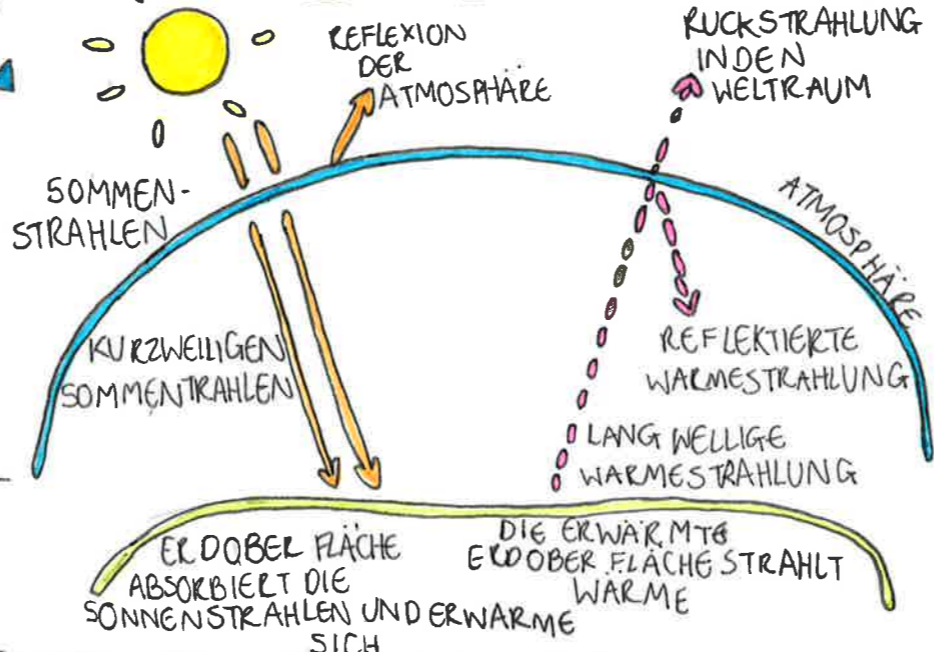 REFLEXION
DER
ATMOSPHÄRE
RUCKSTRAHLUNG
IN DEN
WELTRAUM
SOMMEN-
STRAHLEN
ATMOSPHÄRE
KURZWEILIGEN
SOMMENTRAHLEN
REFLEKTIERTE
WARMESTRAHLUNG
LANG WELLIGE
WARMESTRAHLUNG
ERDOBER FLÄCHE
ABSORBIERT DIE
SONNENSTRAHLEN UND ERWARME
SICH
DIE ERWÄRMTE
ERDOBER FLÄCHE STRAHLT
WARME